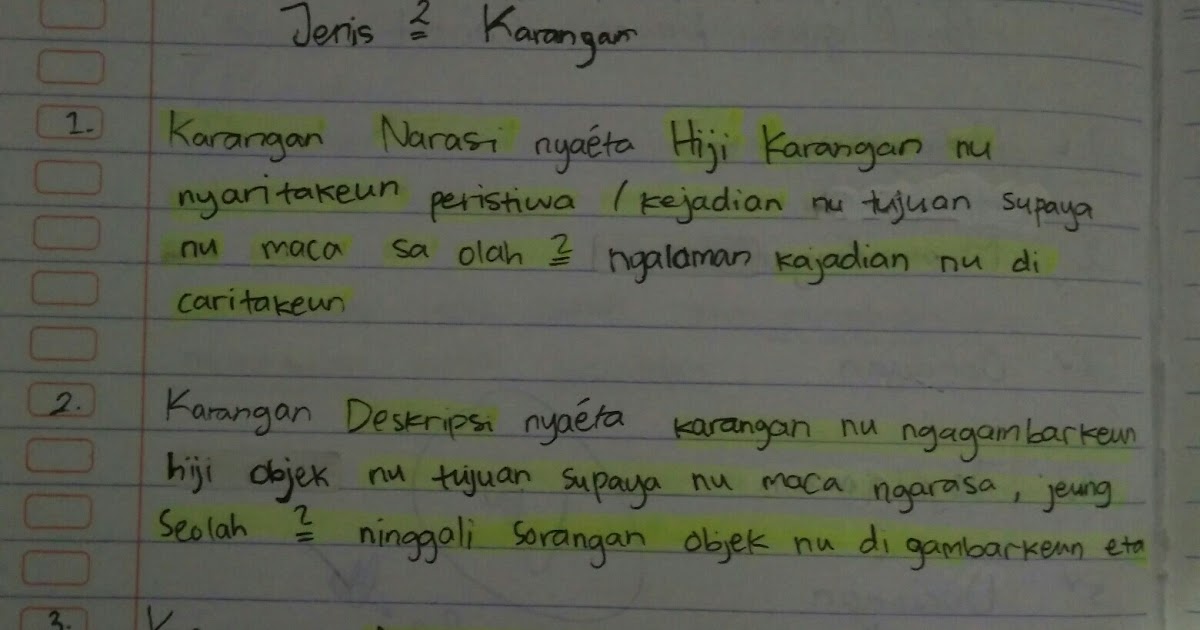 Jenis 2 Karangan
1. Karangan Narasi nyaéta Hiji Karangan nu
nyaritakeun peristiwa / kejadian nu tujuan supaya
nu maca sa olah 2 ngalaman kajadian nu di
caritakeun
2. Karangan Deskripsi nyaéta karangan nu ngagambarkeun
hiji objek nu tujuan supaya nu maca ngarasa, jeung
Seolah 2 ninggali sorangan objek nu di gambarkeun eta
3.